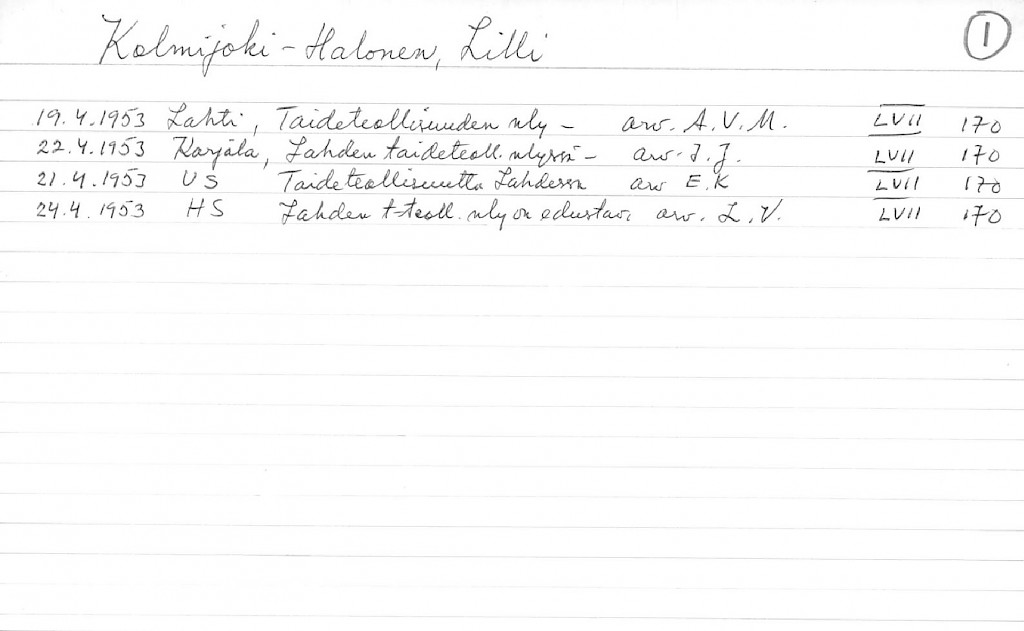 Kolmijoki-Halonen, Lilli 1
19.4.1953 Lahti, Taideteollisuuden nly - arv. A.V.M. LVII 170
22.4.1953 Karjala, Lahden taideteoll. nlyssä - arv. J.J. LVII 170
21.4.1953 US Taideteollisuutta Lahdessa arv E.K LVII 170
24.4.1953 HS Lahden t-teoll. nly on edustava arv. L.V. LVII 170